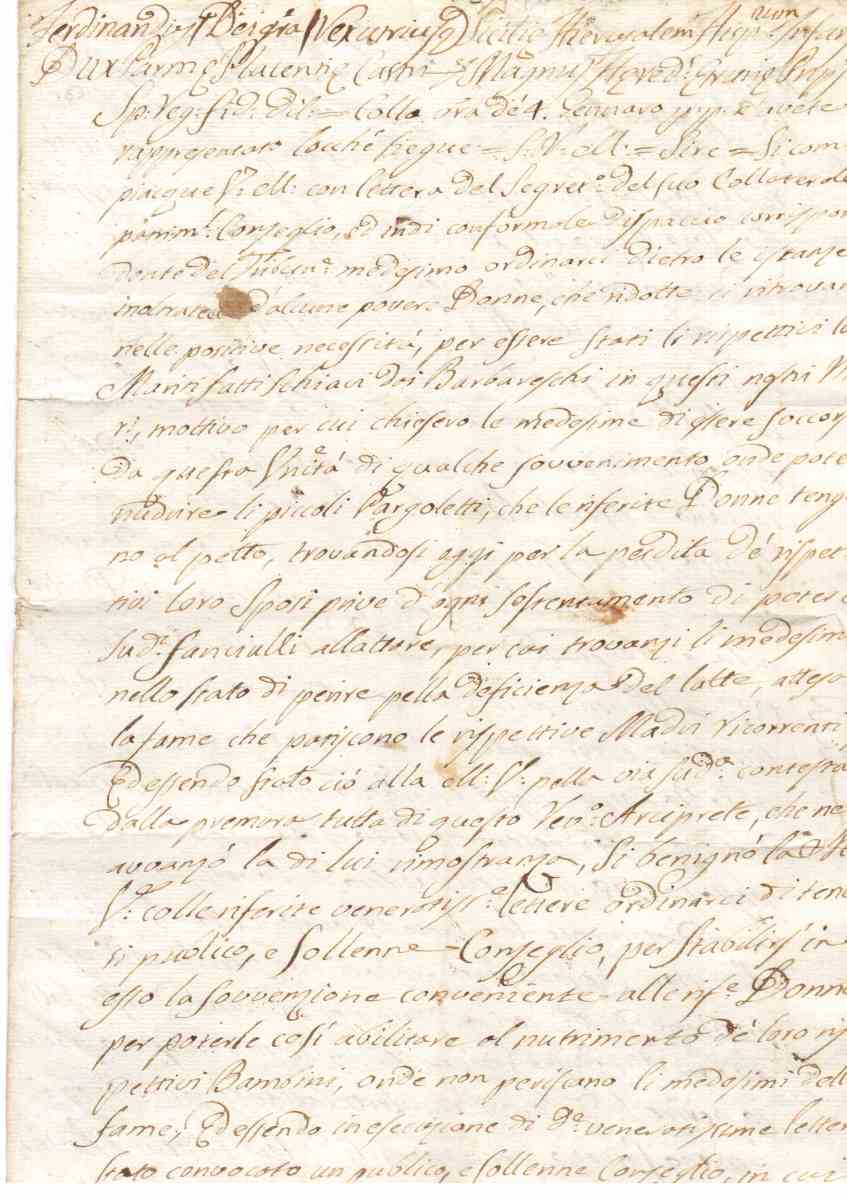 Ferdinandus Dei gra Rex utriusq Sicilie Hierusalem
Dux Parme Placentie Castri &c Magnus
Sp: Reg: fid: dil: = Colla ora de' 4. Gennaro p.p. avete
rappresentato locché siegue = S. R. M. = Sire = Si com
piacque con lettera del Segret.o del suo Collaterale
Conseglio, ed indi conformale dispaccio corrispon
dente del medesimo ordinarci dietro le istanze
inoltrateli d'alcune povere Donne, che ridotte si ritrovan
nelle positive necessità, per essere stati li rispettivi lo
Mariti fatti schiavi dai Barbareschi in questi nghi M
ri, mottivo per cui chiesero le medesime di essere soccor
da questa Vnità di qualche sovvenimento onde pote
nudrire li piccoli Pargoletti, che le riferite Donne tengo
no al petto, trovandosi oggi per la perdita de' rispet
tivi loro Sposi prive d'ogni sostentamento di poter
sud.i fanciulli allattare, per cui trovansi li medesim
nello stato di perire pella deficienza del latte, atteso
la fame che patiscono le rispettive Madri ricorrenti,
Ed essendo stato ciò alla pella via sud.a contesta
dalla premura tutta di questo Ven.o Arciprete, che ne
avvanzó la di lui rimostranza, Si benignó la
V.a colle riferite veneratiss.e lettere ordinarci di tene
si publico, e sollenne Conseglio, per stabilirsi in
esso la sovvenzione conveniente alle rif.e Donne
per poterle così abilitare al nutrimento de' loro ris
pettivi Bambini, onde non periscano li medesimi dell
fame; Ed essendo in esecuzione di d.e veneratissime letter
stato convocato un publico, e sollenne Conseglio, in cui